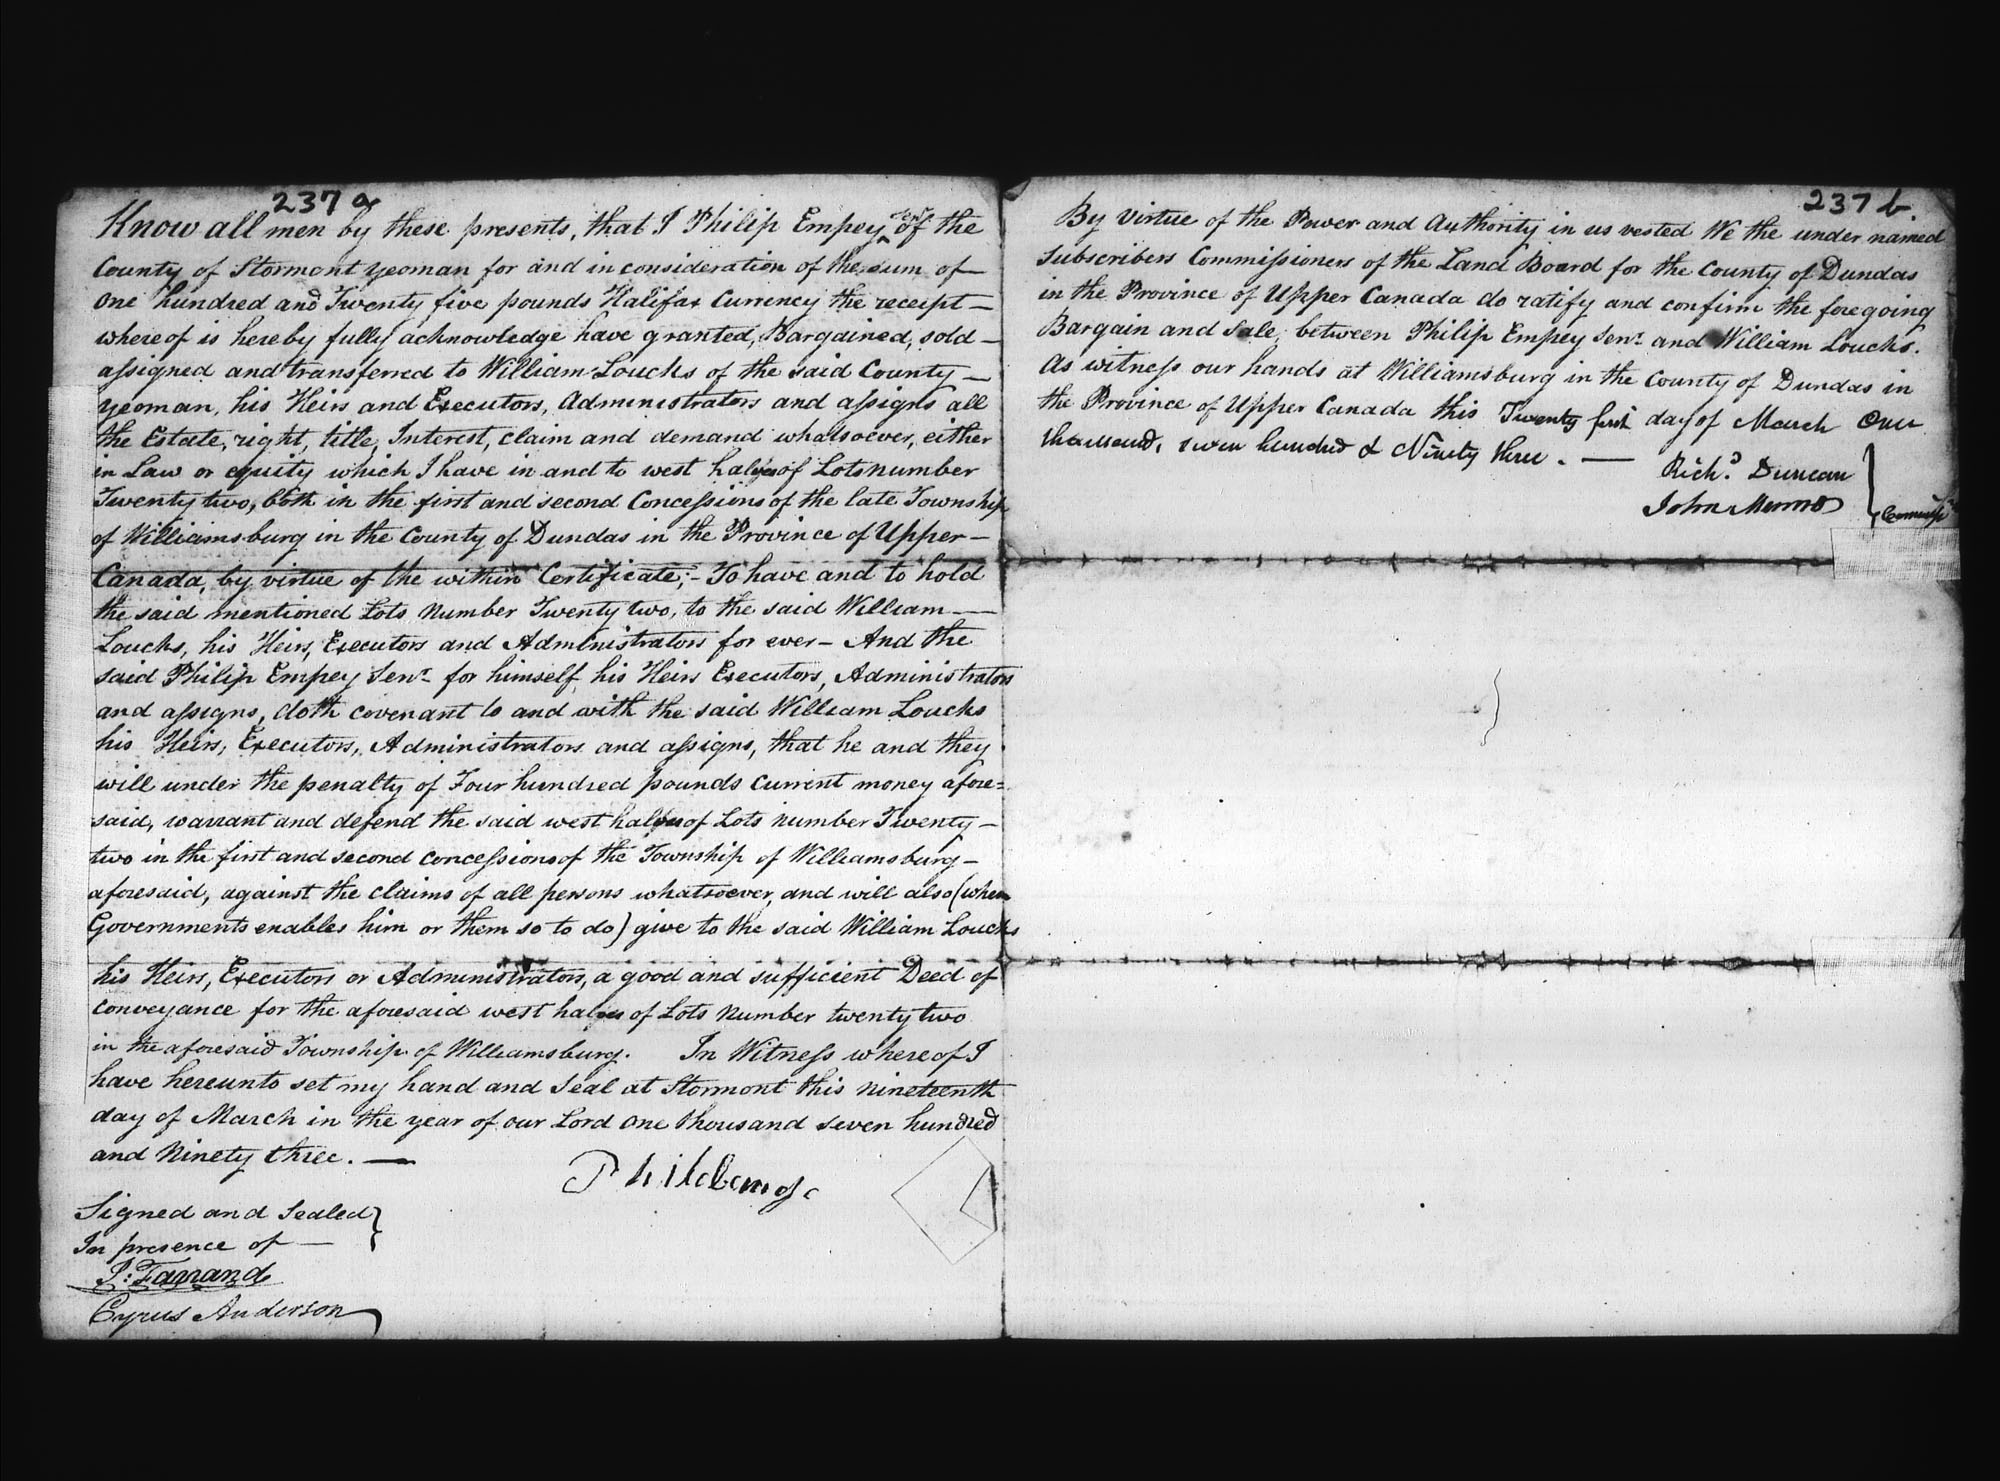 237 a
Know all men by these presents, that I Philip Empey Senr of the
County of Stormont yeoman for and in consideration of the sum of —
one hundred and Twenty five pounds Halifax Currency the receipt —
whereof is hereby fully acknowledge have granted, Bargained, sold —
assigned and transferred to William Loucks of the said County —
yeoman, his Heirs and Executors, Administrators and assigns all
the Estate, right, title, Interest, claim and demand whatsoever, either
in Law or equity which I have in and to west halves of Lots number
Twenty two, both in the first and second Concessions of the late Township
of Williamsburg in the County of Dundas in the Province of Upper —
Canada, by virtue of the within Certificate; - To have and to hold
the said mentioned Lots number Twenty two, to the said William —
Loucks, his Heirs, Executors and Administrators for ever — And the
said Philip Empey Senr for himself, his Heirs Executors, Administrators
and assigns, doth covenant to and with the said William Loucks
his Heirs, Executors, Administrators and assigns, that he and they
will under the penalty of Four hundred pounds current money afore=
said, warrant and defend the said west halves of Lots number Twenty —
two in the first and second concessions of the Township of Williamsburg —
aforesaid, against the claims of all persons whatsoever, and will also (when
Governments enables him or them so to do) give to the said William Loucks
his Heirs, Executors or Administrators, a good and sufficient Deed of
conveyance for the aforesaid west halves of Lots number twenty two
in the aforesaid Township of Williamsburg. In Witness whereof I
have hereunto set my hand and Seal at Stormont this nineteenth
day of March in the year of our Lord one thousand seven hundred
and Ninety three. —
Signed and Sealed }
In presence of —
P: Farrand
Cyrus Anderson
237 b.
By Virtue of the Power and Authority in us vested We the under named
Subscribers Commissioners of the Land Board for the County of Dundas
in the Province of Upper Canada do ratify and confirm the foregoing
Bargain and Sale, between Philip Empey Senr and William Loucks.
As witness our hands at Williamsburg in the County of Dundas in
the Province of Upper Canada this Twenty first day of March One
thousand, seven hundred & Ninety three. —
Richd. Duncan
John Munro